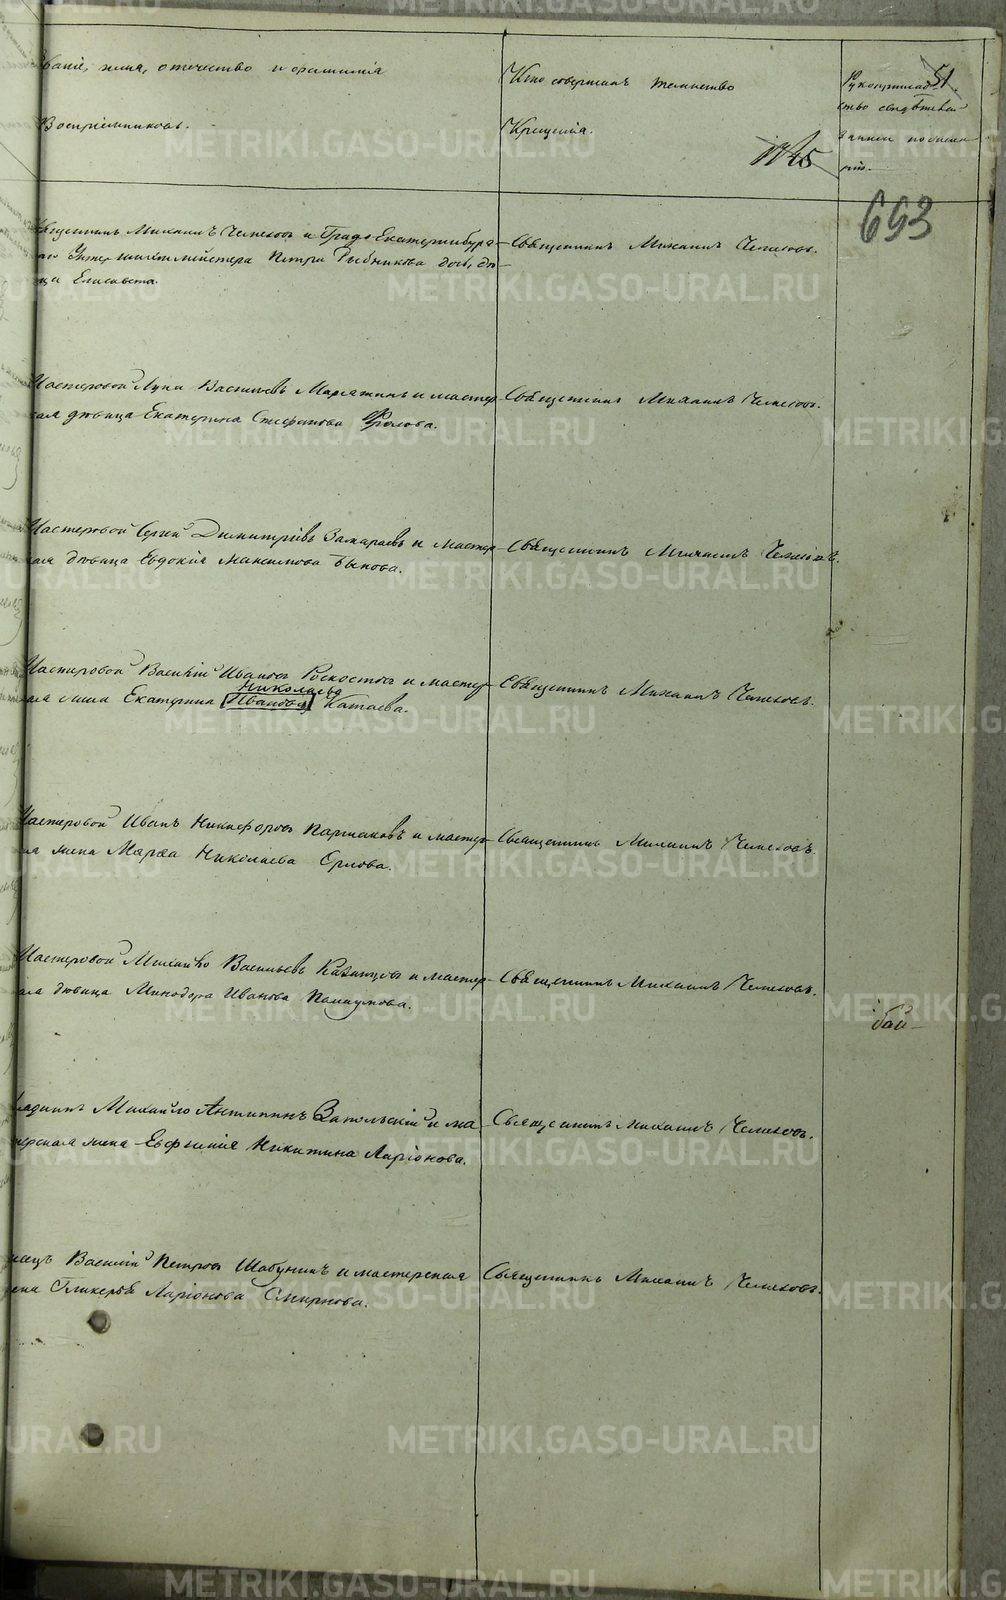 Званіе, имя, отчество и фамилія
Воспріемниковъ.
Кто совершалъ таинство
Крещенія.
Рукоприклад-
ство свидѣтелей
записи по желан-
ію.
51.
1745
693
Священникъ Михаилъ Челеховъ и Града Екатеринбур-
Петра Рыбникова дочь, дѣ-
ца Елисавета.
Священникъ Михаилъ Челеховъ.
Мастеровой Лука Васильевъ и мастер-
ская дѣвица Екатерина Стефанова Фролова.
Священникъ Михаилъ Челеховъ.
Мастеровой Сергій Димитріевъ Захаровъ и мастер-
ская дѣвица Евдокія Максимова Быкова.
Священникъ Михаилъ Челеховъ.
Мастеровой Василій Ивановъ и мастер-
Николаева
ская жена Екатерина Иванова Катаева.
Священникъ Михаилъ Челеховъ.
Мастеровой Иванъ Никифоровъ Паршаковъ и мастер-
ская жена Марѳа Николаева Орлова.
Священникъ Михаилъ Челеховъ.
Мастеровой Михайло Васильевъ Казанцовъ и мастер-
ская дѣвица Минодора Иванова
Священникъ Михаилъ Челеховъ.
бай-
Михайло Антипинъ Запольскій и ма-
стерская жена Евфимія Никитина Ларіонова.
Священникъ Михаилъ Челеховъ.
Василій Петровъ Шабунинъ и мастерская
жена Гликерія Ларіонова Смирнова.
Священникъ Михаилъ Челеховъ.
METRIKI.GASO-URAL.RU